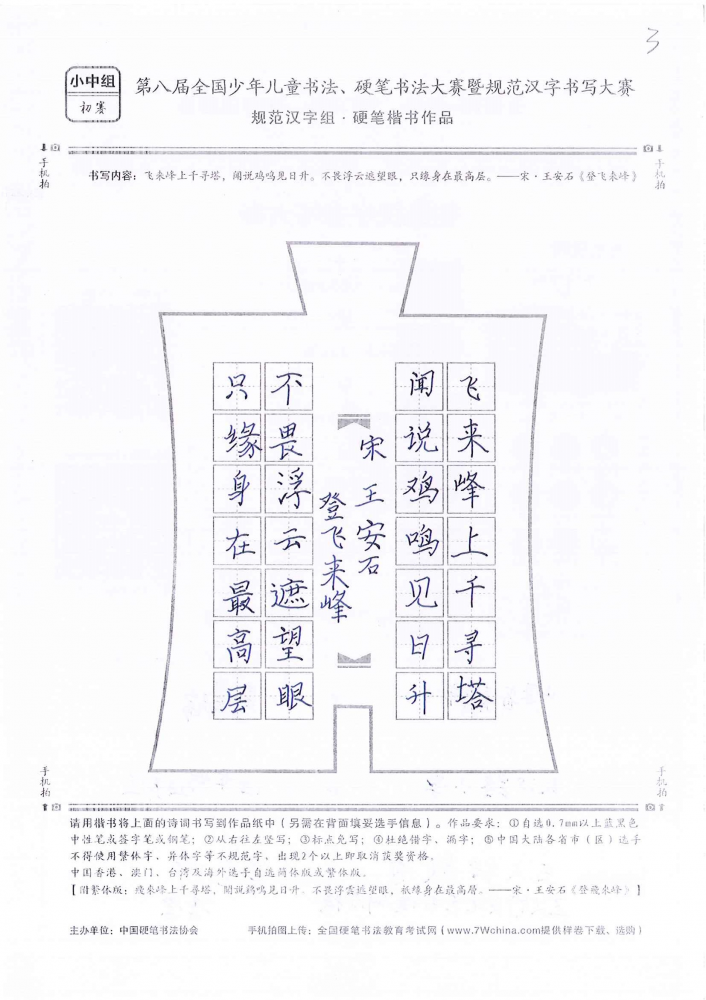 3
小中组
初赛
第八届全国少年儿童书法、硬笔书法大赛暨规范汉字书写大赛
规范汉字组·硬笔楷书作品
手机拍
手机拍
书写内容：飞来峰上千寻塔，闻说鸡鸣见日升。不畏浮云遮望眼，只缘身在最高层。——宋·王安石《登飞来峰》
飞来峰上千寻塔
闻说鸡鸣见日升
宋 王安石
登飞来峰
不畏浮云遮望眼
只缘身在最高层
手机拍
手机拍
请用楷书将上面的诗词书写到作品纸中（另需在背面填妥选手信息）。作品要求：①自选0.7mm以上蓝黑色
中性笔或签字笔或钢笔；②从右往左竖写；③标点免写；④杜绝错字、漏字；⑤中国大陆各省市（区）选手
不得使用繁体字、异体字等不规范字，出现2个以上即取消获奖资格。
中国香港、澳门、台湾及海外选手自选简体版或繁体版。
【附繁体版：飛來峰上千尋塔，聞說鷄鳴見日升。不畏浮雲遮望眼，祇緣身在最高層。——宋·王安石《登飛來峰》】
主办单位：中国硬笔书法协会
手机拍图上传：全国硬笔书法教育考试网（www.7Wchina.com提供样卷下载、选购）